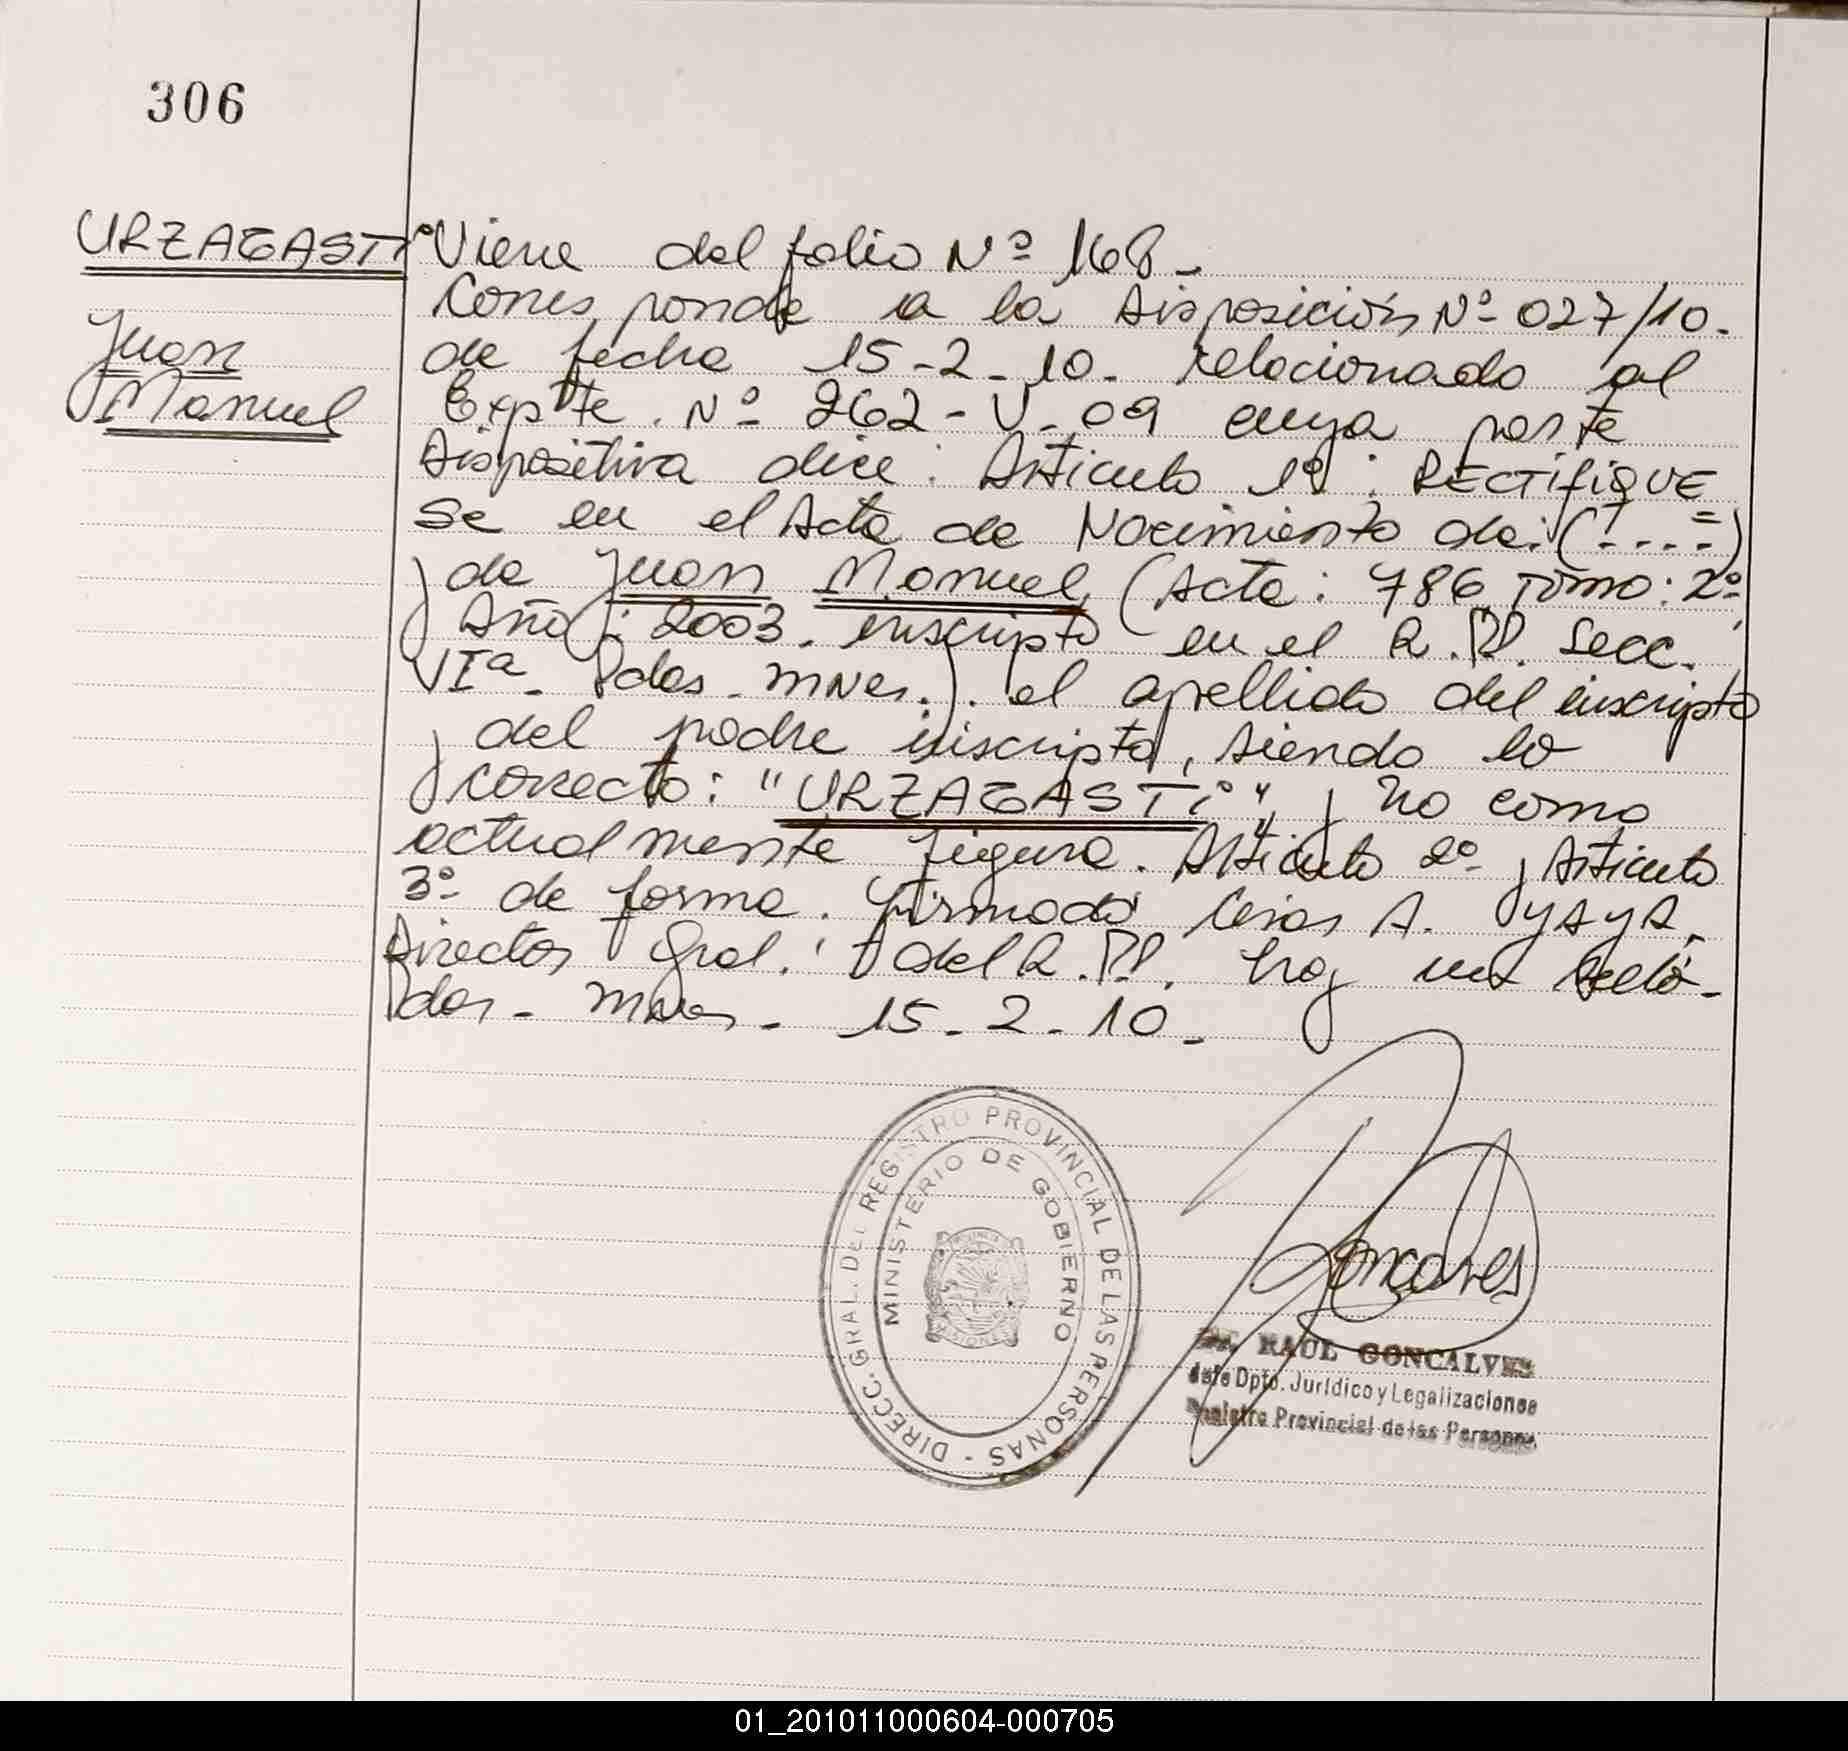 306
URZAGASTI
Juan
Manuel
Viene del folio Nº 168-
Corresponde a la Disposición Nº 027/10.
de fecha 15-2-10- relacionado al
Expte. Nº 262-V-09 cuya parte
Dispositiva dice: Artículo 1º: RECTIFIQUE
se en el Acta de Nacimiento de: (!....=)
y de Juan Manuel (Acta: 786 Tomo: 2º
y Año: 2003. inscripto en el R.P.P. Secc.
VIª- Pdas- mnes.). el apellido del inscripto
y del padre inscripto, siendo lo
correcto: "URZAGASTI" y no como
actualmente figura. Artículo 2º y Artículo
3º- de forma. Firmado César A. YAYA.
Director Gral. del R.P.P. hay un sello-
Pdas- mnes- 15-2-10-
DIRECC. GRAL. DEL REGISTRO PROVINCIAL DE LAS PERSONAS -
MINISTERIO DE GOBIERNO
MISIONES
Goncalves
RAUL GONCALVES
Jefe Dpto. Jurídico y Legalizaciones
Registro Provincial de las Personas
01_201011000604-000705